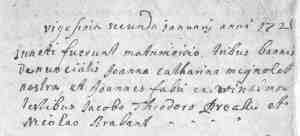 vigesima secunda januarij anni 172
juncti fuerunt matrimonio, tribus bannis
denunciatis Joanna catharina mignolet
nostra et Joannes fabri ex
testibus Jacobo Theodoro et
Nicolao Brabant